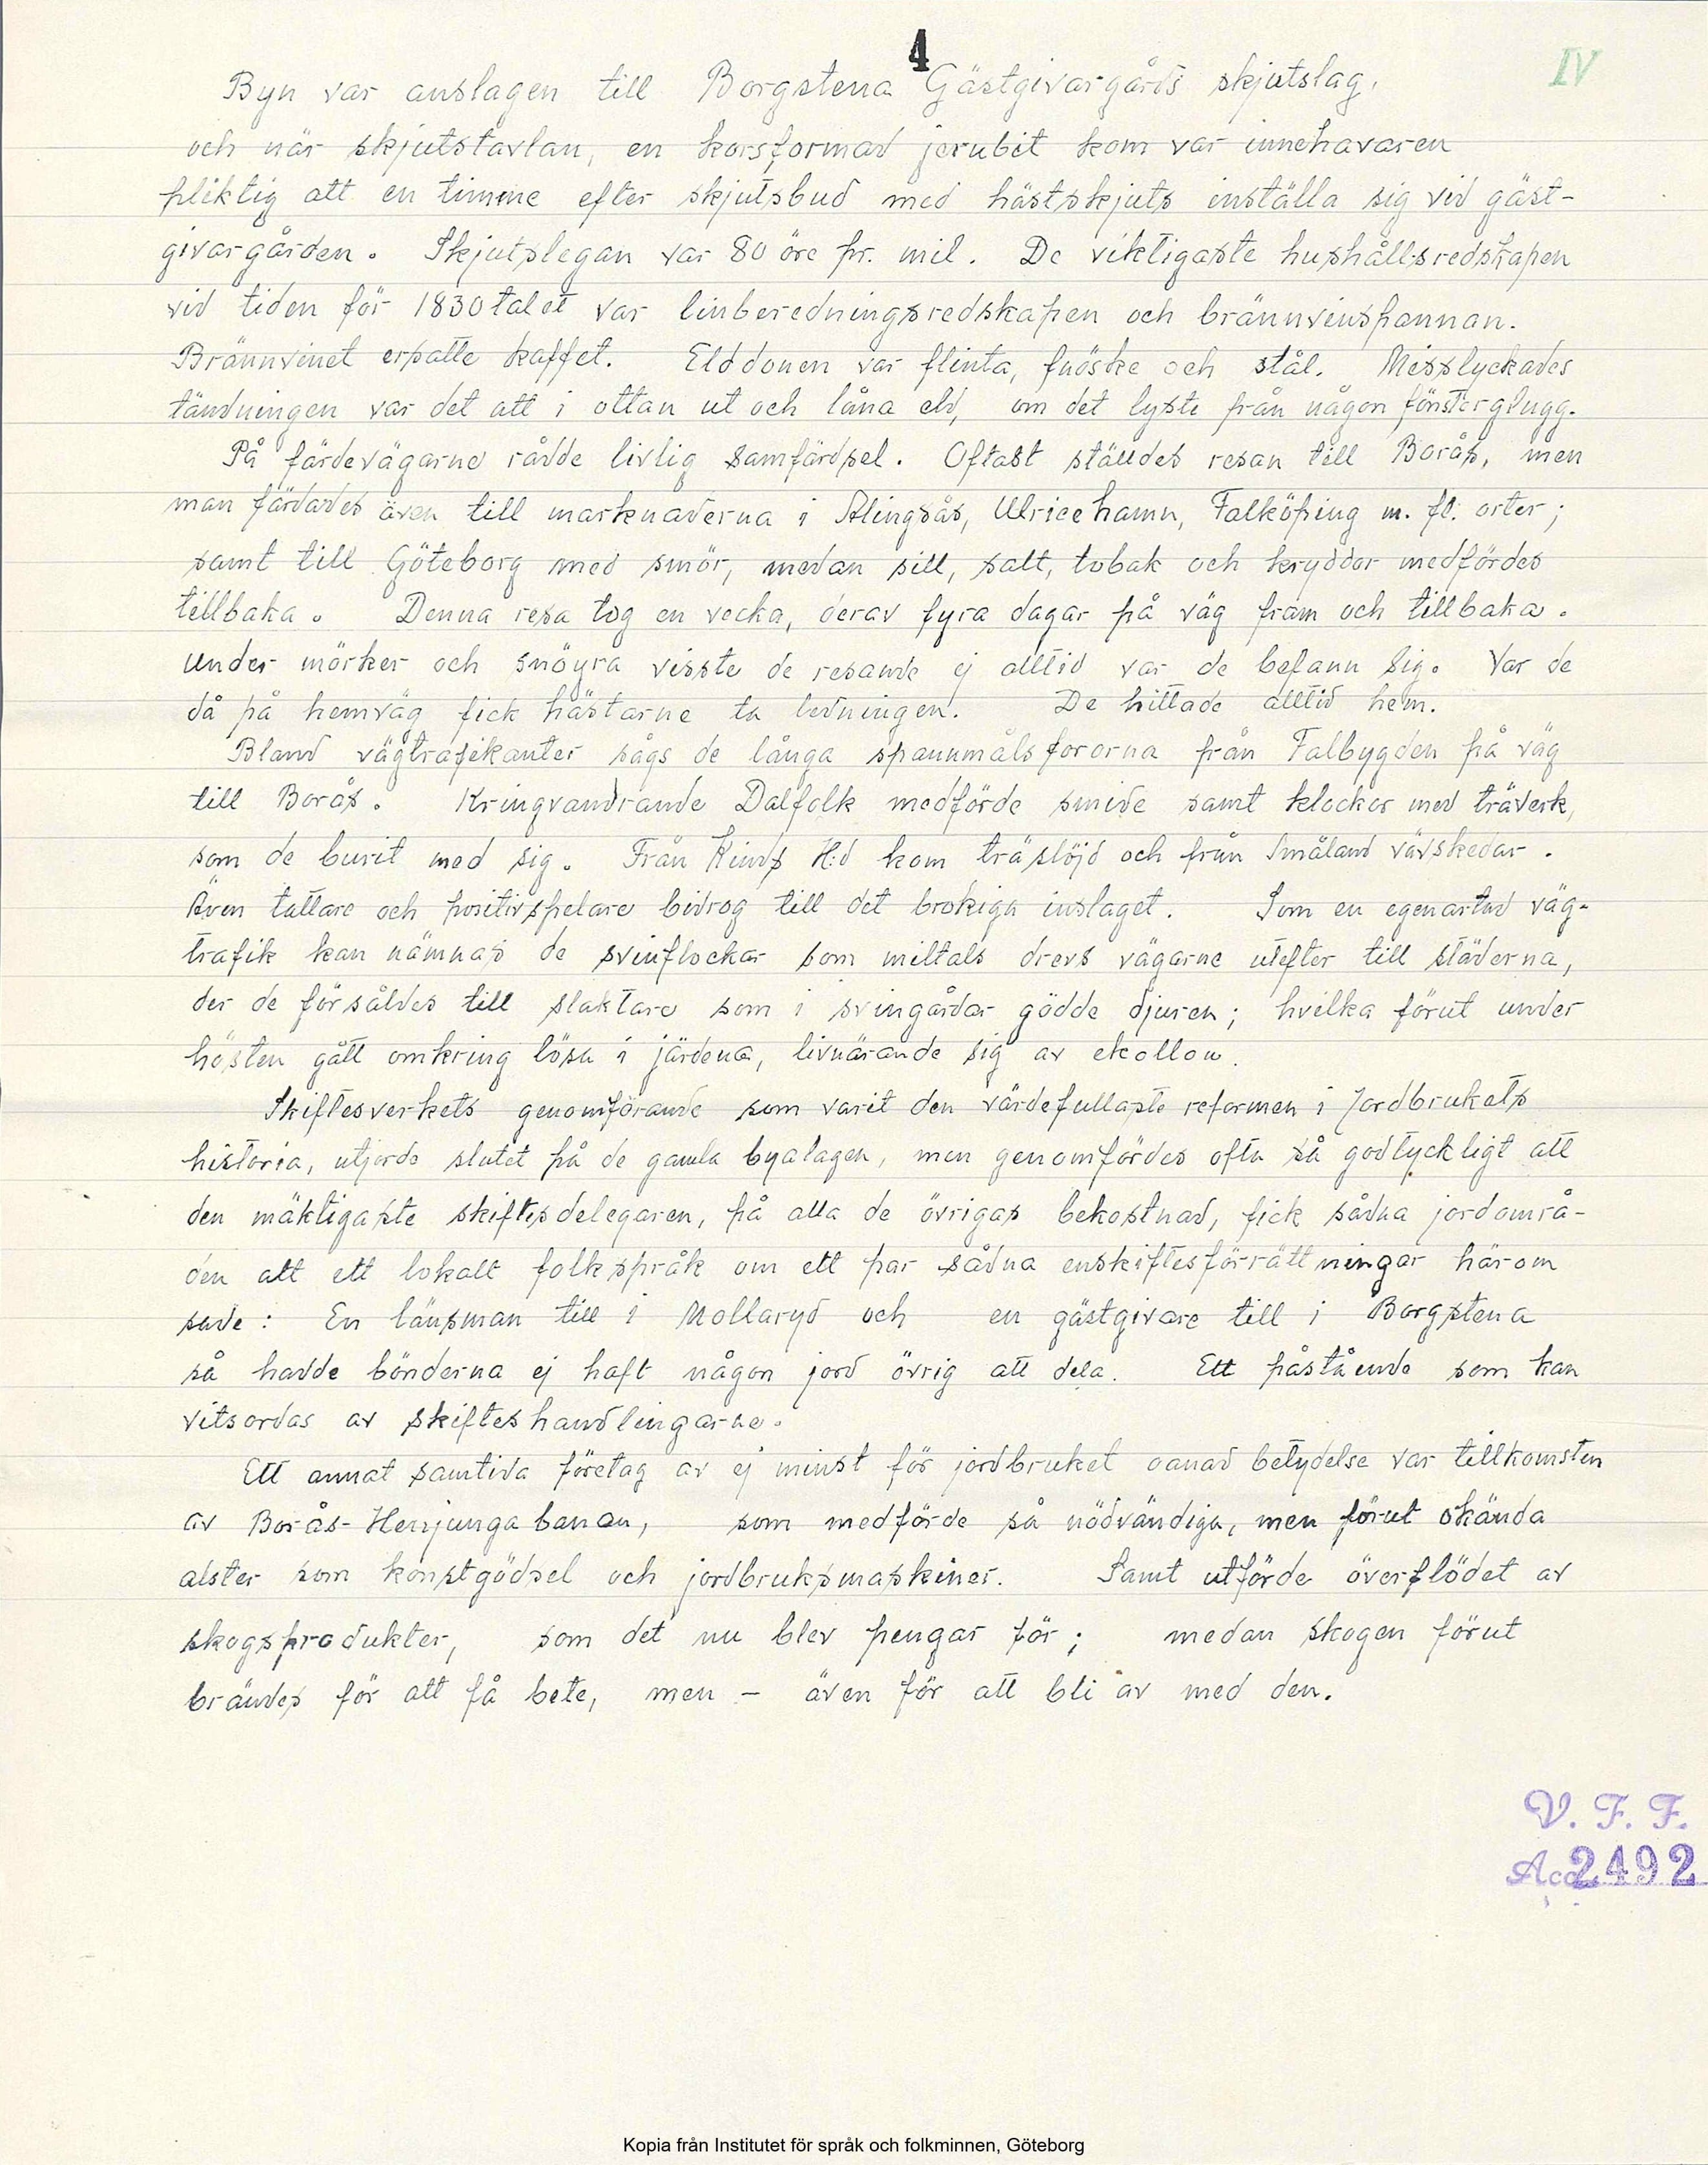 4
IV
Byn var anslagen till Borgstena Gästgivargårds skjutslag.
och när skjutstavlan, en korsformad jernbit kom var innehavaren
pliktig att en timme efter skjutsbud med hästskjuts inställa sig vid gäst-
givargården. Skjutslegan var 80 öre pr. mil. De viktigaste hushållsredskapen
vid tiden för 1830 talet var linberedningsredskapen och brännvinspannan.
Brännvinet ersatte kaffet. Elddonen var flinta, fnöske och stål. Misslyckades
tändningen var det att i ottan ut och låna eld, om det lyste från någon fönsterglugg.
På färdevägarne rådde livlig samfärdsel. Oftast ställdes resan till Borås, men
man färdades även till marknaderna i Alingsås, Ulricehamn, Falköping m. fl. orter;
samt till Göteborg med smör, medan sill, salt, tobak och kryddor medfördes
tillbaka. Denna resa tog en vecka, derav fyra dagar på väg fram och tillbaka.
Under mörker och snöyra visste de resande ej alltid var de befann sig. Var de
då på hemväg fick hästarne ta ledningen. De hittade alltid hem.
Bland vägtrafikanter sågs de långa spannmålsfororna från Falbygden på väg
till Borås. Kringvandrande Dalfolk medförde smide samt klockor med träverk,
som de burit med sig. Från Kinds H:d kom träslöjd och från Småland vävskedar.
Även tattare och positivspelare bidrog till det brokiga inslaget. Som en egenartad väg-
trafik kan nämnas de svinflockar som miltals drevs vägarne utefter till städerna,
der de försåldes till slaktare som i svingårdar gödde djuren; hvilka förut under
hösten gått omkring lösa i järdena, livnärande sig av ekollon.
Skiftesverkets genomförande som varit den värdefullaste reformen i Jordbrukets
historia, utjorde slutet på de gamla byalagen, men genomfördes ofta så godtyckligt att
den mäktigaste skiftesdelegaren, på alla de övrigas bekostnad, fick sådna jordområ-
den att ett lokalt folkspråk om ett par sådna enskiftesförrättningar härom
sade: En länsman till i Mollaryd och en gästgivare till i Borgstena
så hadde bönderna ej haft någon jord övrig att dela. Ett påstående som kan
vitsordas av skifteshandlingarne.
Ett annat samtida företag av ej minst för jordbruket oanad betydelse var tillkomsten
av Borås-Herrjunga banan, som medförde så nödvändiga, men förut okända
alster som konstgödsel och jordbruksmaskiner. Samt utförde överflödet av
skogsprodukter, som det nu blev pengar för; medan skogen förut
brändes för att få bete, men – även för att bli av med den.
V. F. F.
Acc. 2492
Kopia från Institutet för språk och folkminnen, Göteborg